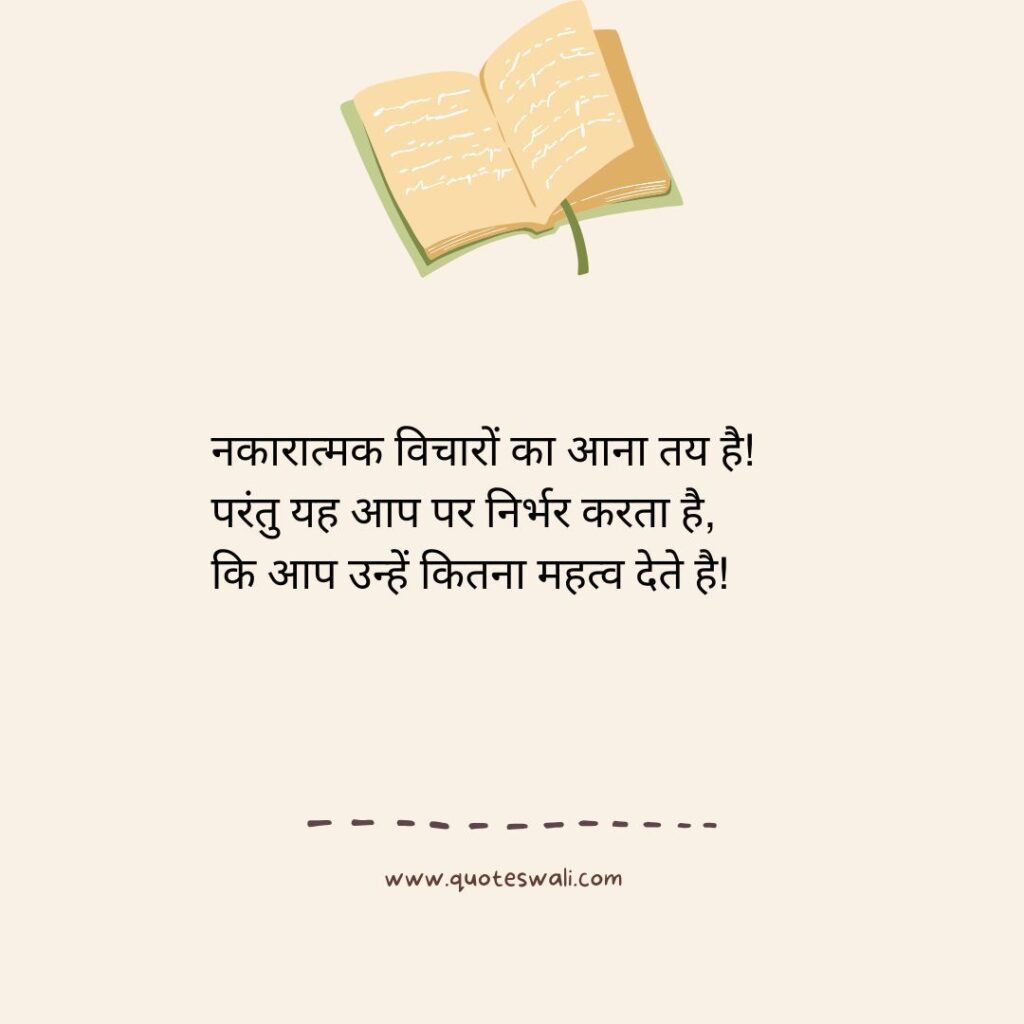 नकारात्मक विचारों का आना तय है!
परंतु यह आप पर निर्भर करता है,
कि आप उन्हें कितना महत्व देते है!
www.quoteswali.com